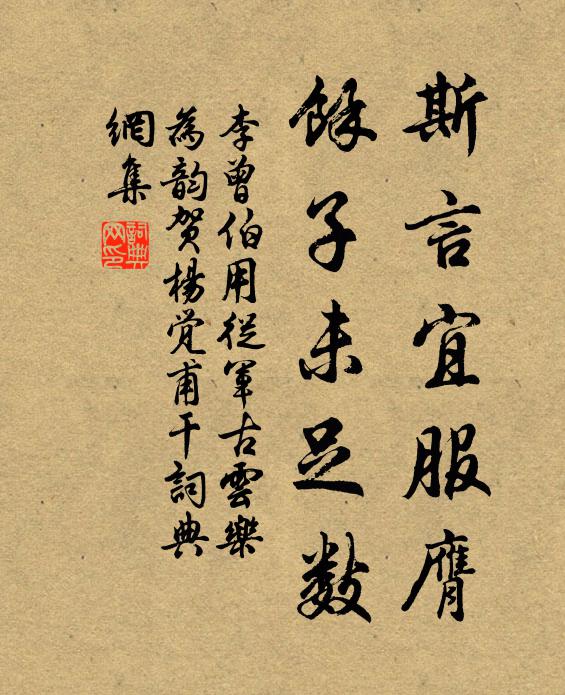 斯言宜服膺
餘子未足数
李曾伯用從軍古雲樂
為韵贺楊覚甫干詞典
網集
詞典
网印